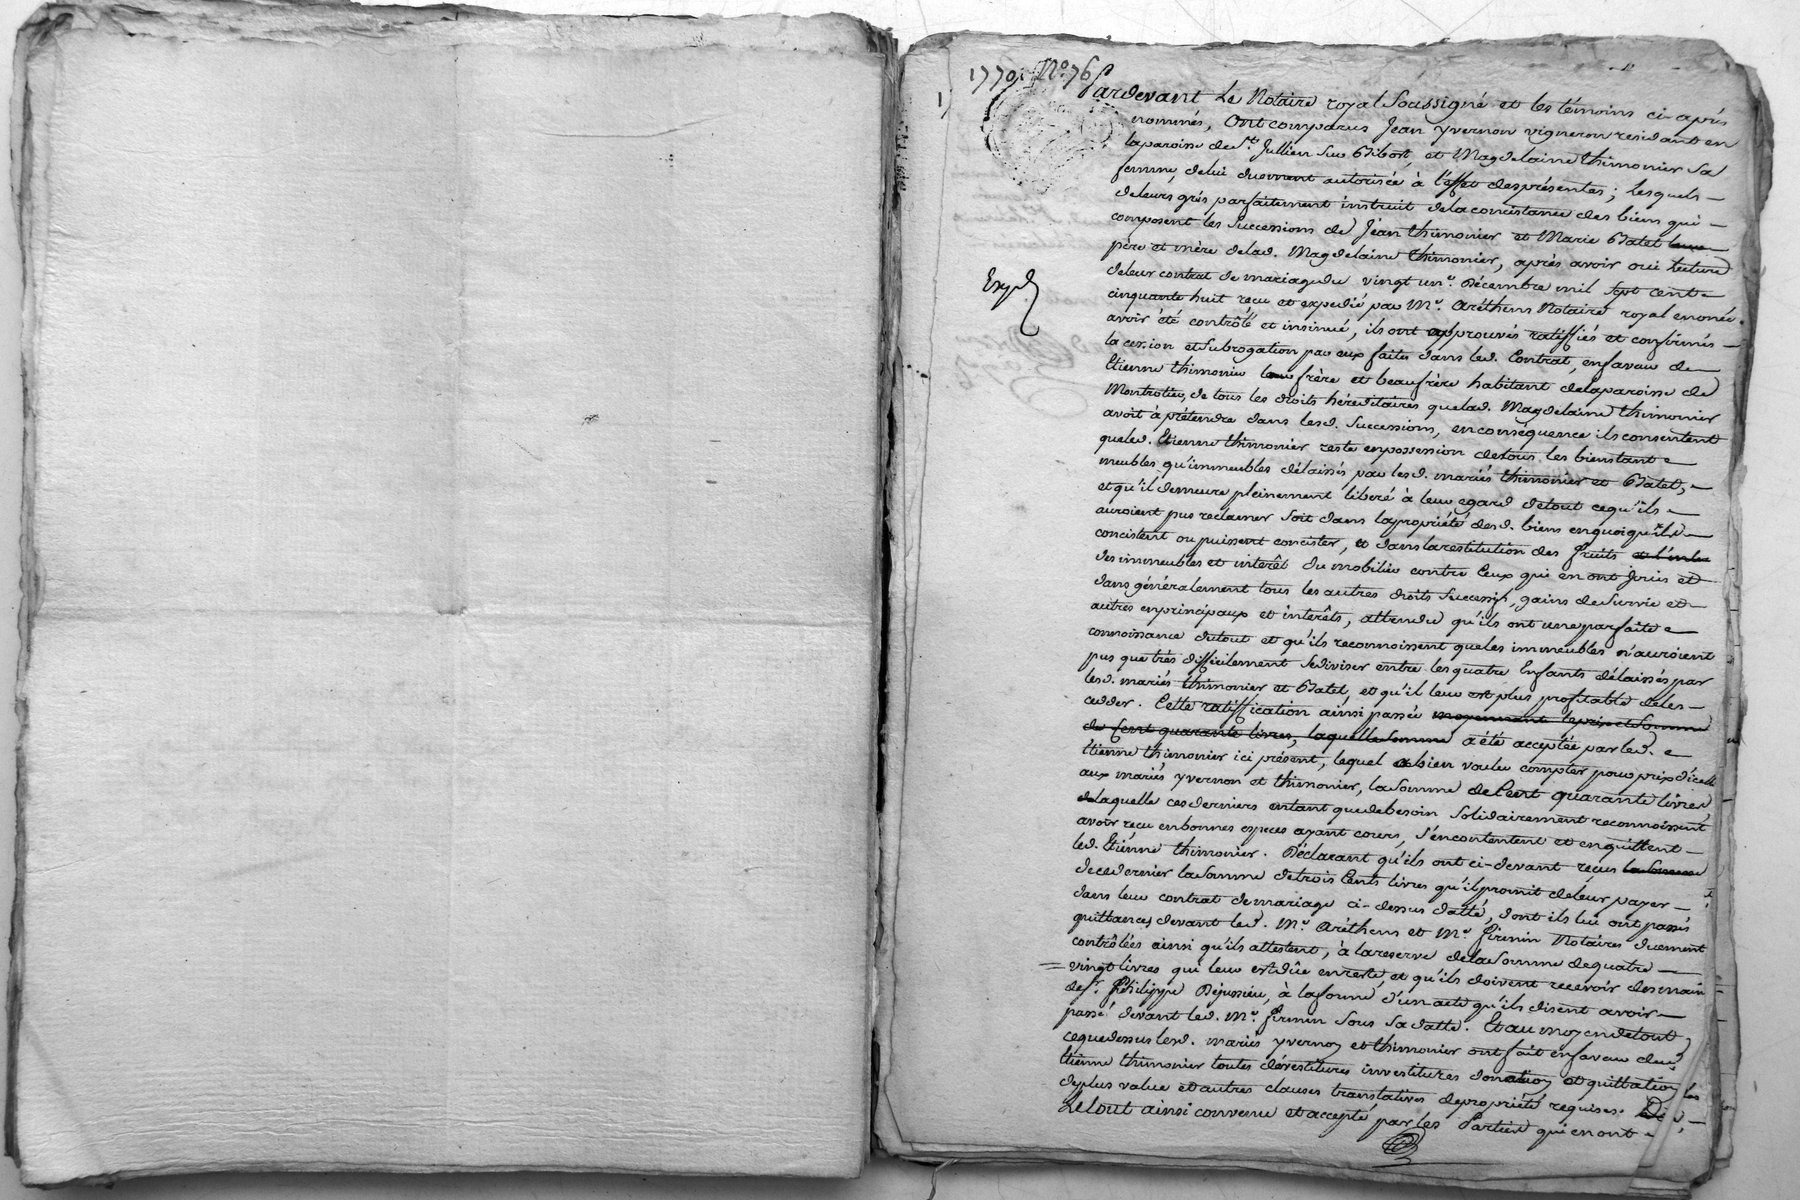 1770. N.º 76
1)
Pardevant Le Notaire royal Soussigné et les témoins ci-après
nommés, Ont comparus Jean yvernon vigneron residant en
la paroisse de St. Jullien Sur Bibost, et Magdelaine thimonier Sa
femme, de lui duement autorisée à l'effet des présentes; Lesquels -
de leurs grés parfaitement instruit de la concistance des biens qui -
composent les Successions de Jean thimonier et Marie Batet leurs
père et mère de lad. Magdelaine thimonier, après avoir oui lecture
de leur contrat de mariage du vingt un e. Décembre mil sept cent -
Expd.
cinquante huit reçu et expedié par Me. Aréthens Notaire royal enoncé
avoir été contrôlé et insinué, ils ont approuvés ratiffiés et confirmés -
la cession et Subrogation par eux faite dans led. Contrat, en faveur de -
Etienne thimonier leur frère et beaufrère habitant de la paroisse de
Montrotier, de tous les droits héréditaires que lad. Magdelaine thimonier
avoit à prétendre dans lesd. Successions, en conséquence ils consentent
que led. Etienne thimonier reste en possession de tous les biens tant -
meubles qu'immeubles délaissés par lesd. mariés thimonier et Batet, -
et qu'il demeure pleinement liberé à leur egard de tout ce qu'ils -
auroient pus reclamer soit dans la propriété desd. biens en quoi qu'ils -
concistent ou puissent concister, et dans la restitution des fruits
des immeubles et intérêt du mobilier contre Ceux qui en ont Jouis et
dans généralement tous les autres droits Successifs, gains de Survie et -
autres en principaux et intérêts, attendu qu'ils ont une parfaite -
connoissance du tout et qu'ils reconnoissent que les immeubles n'auroient
pus que très difficilement se diviser entre les quatre Enfants délaissés par
lesd. mariés thimonier et Batet, et qu'il leur est plus profitable de les -
cedder. Cette ratiffication ainsi passée moyennant le prix et Somme
de Cent quarante livres, laquelle Somme a été acceptée par led. -
Etienne thimonier ici présent, lequel a bien voulu compter pour prix d'icelle
aux mariés yvernon et thimonier, la Somme de Cent quarante livres,
de laquelle ces derniers entant que de besoin Solidairement reconnoissent
avoir reçu en bonnes especes ayant cours, S'en contentent et en quittent -
led. Etienne thimonier. Déclarant qu'ils ont ci-devant reçus la Somme
de ce dernier la Somme de trois Cents livres qu'il promit de leur payer -
dans leur contrat de mariage ci-dessus datté, dont ils lui ont passés
quittances devant led. Me. Aréthens et Me. Firmin Notaires duement
contrôlées ainsi qu'ils attestent, à la reserve de la Somme de quatre -
vingt livres qui leur est dûe en reste, et qu'ils doivent recevoir des main
de Sr. Philippe Dejussieu, à la forme d'un acte qu'ils disent avoir -
passé devant led. Me. Firmin Sous Sa datte. Et au moyen de tout
ce que dessus lesd. mariés yvernon et thimonier ont fait en faveur dud.
Etienne thimonier toutes dévestitures investitures donation et quittation
de plus value et autres clauses translatives de propriété requises.
Le tout ainsi convenu et accepté par les Parties qui en ont -